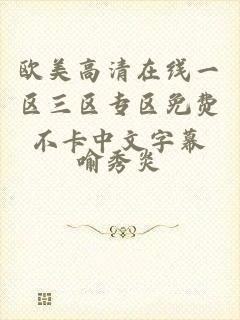 欧美高清在线一
区三区专区免费
不卡中文字幕
喻秀炎